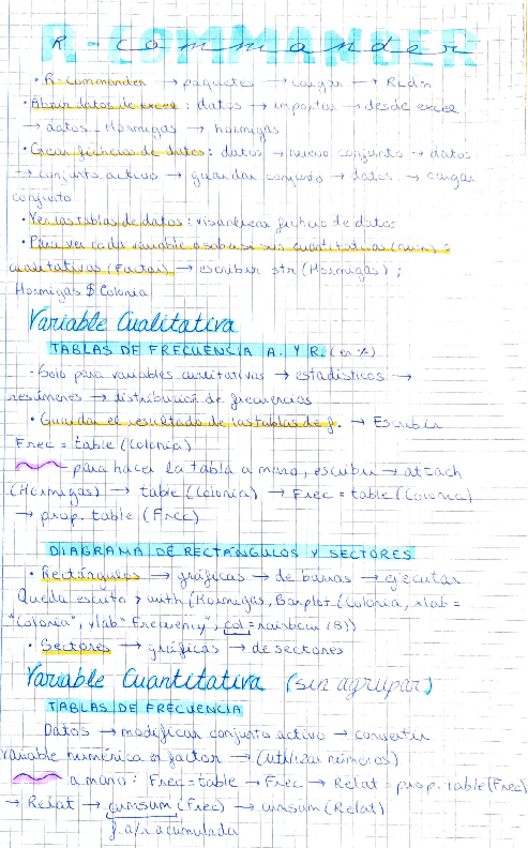 R-COMMANDER
R-commander
· R-Commander → paquetes → cargar → Rcdm
· Abrir datos de excel : datos → importar → desde excel
→ datos - Hormigas → hormigas
· Crear ficheros de datos: datos → nuevo conjunto → datos
→ conjunto activo → guardar conjunto → datos → cargar
conjunto
· Ver las tablas de datos: visualizar fichero de datos
· Para ver cada variable o saber si son cuantitativas (num) o
cualitativas (Factor) → escribir str (Hormigas) ;
Hormigas $ Colonia
Variable Cualitativa
TABLAS DE FRECUENCIA A. Y R. (en %)
- Solo para variables cualitativas → estadísticos →
resúmenes → distribución de frecuencias
· Guardar el resultado de las tablas de f. → Escribir
Frec = table (Colonia)
para hacer la tabla a mano, escribir → attach
(Hormigas) → table (Colonia) → Frec = table (Colonia)
→ prop. table (Frec)
DIAGRAMA DE RECTÁNGULOS Y SECTORES
· Rectángulos → gráficas → de barras → ejecutar
Queda escrito > with (Hormigas, Barplot (Colonia, xlab =
"Colonia", ylab= "Frequency", col = rainbow (8))
· Sectores → gráficas → de sectores
Variable Cuantitativa (sin agrupar)
TABLAS DE FRECUENCIA
Datos → modificar conjunto activo → convertir
variable numérica en factor → (utilizar números)
a mano: Frec = table → Frec → Relat = prop. table (Frec)
→ Relat → cumsum (Frec) → cumsum (Relat)
f. a/r acumulada